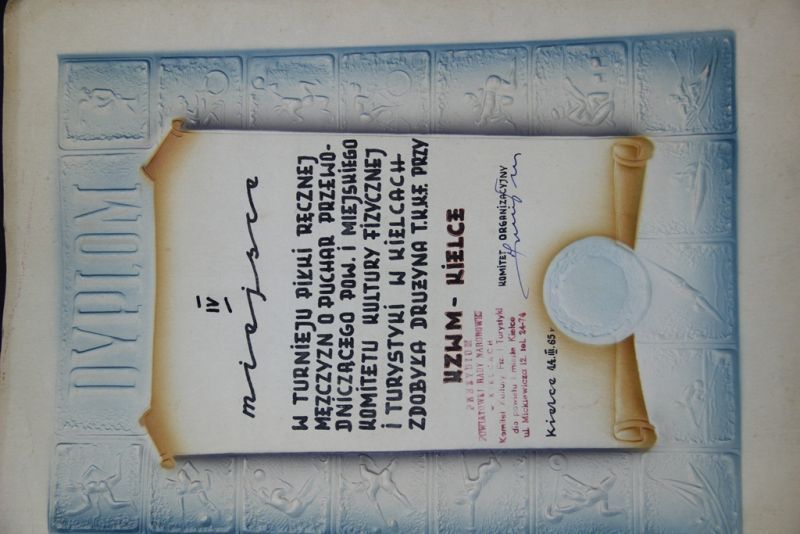 DYPLOM
IV
miejsce
W TURNIEJU PIŁKI RĘCZNEJ
MĘŻCZYZN O PUCHAR PRZEWO-
DNICZĄCEGO POW. I MIEJSKIEGO
KOMITETU KULTURY FIZYCZNEJ
I TURYSTYKI W KIELCACH
ZDOBYŁA DRUŻYNA T.K.K.F. PRZY
KZWM - KIELCE
PREZYDIUM
POWIATOWEJ RADY NARODOWEJ
W KIELCACH
Komitet Kultury Fiz. i Turystyki
dla powiatu i miasta Kielce
ul. Mickiewicza 12, tel. 24-74
KOMITET ORGANIZACYJNY
Kielce 14.III.65 r.